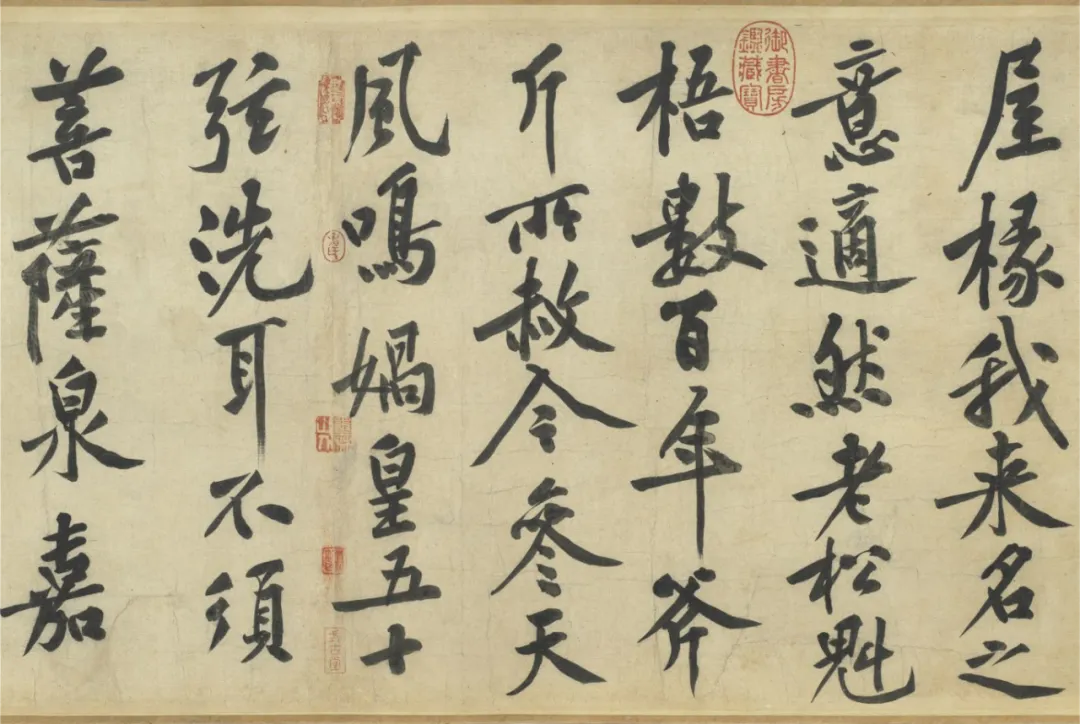 屋椽我来名之
意適然老松魁
梧數百年斧
斤所赦今參天
風鳴媧皇五十
弦洗耳不須
菩薩泉嘉
御書房鑒藏寶